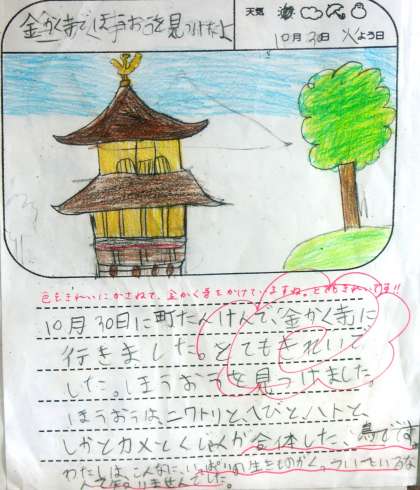 金かく寺で、ほうおうを見つけたよ
天気
10月30日 火よう日
色もきれいにかさねて、金かく寺をかけていますね。とてもきれいです!!
10月30日に町たんけんで、金かく寺に
行きました。とてもきれいで
した。ほうおうを見つけました。
ほうおうは、ニワトリと、へびと、ハトと、
しかとカメとくじゃくが合体した、鳥です。
わたしは、こんなに、いっぱいの生きものがくっついているな
んて知りませんでした。